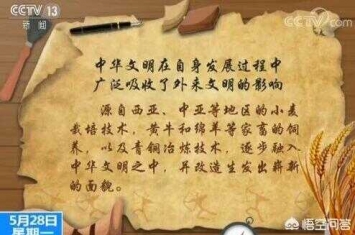 CCTV 13
新闻
CCTV.com
中华文明在自身发展过程中
广泛吸收了外来文明的影响
源自西亚、中亚等地区的小麦
栽培技术，黄牛和绵羊等家畜的饲
养，以及青铜冶炼技术，逐步融入
中华文明之中，并改造生发出崭新
的面貌。
5月28日
星期一
悟空问答